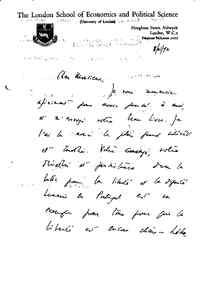 The London School of Economics and Political Science
(University of London)
Houghton Street, Aldwych
London, W.C.2
Cher Monsieur,
Je vous remercie
pour avoir pensé à moi,
et m'envoyé votre livre. Je
l'ai lu avec le plus grand intérêt
et . Votre courage, votre
et dans la
lutte pour la liberté et la dignité
humaine en Portugal est un
exemple pour tous pour qui la
liberté est encore chère